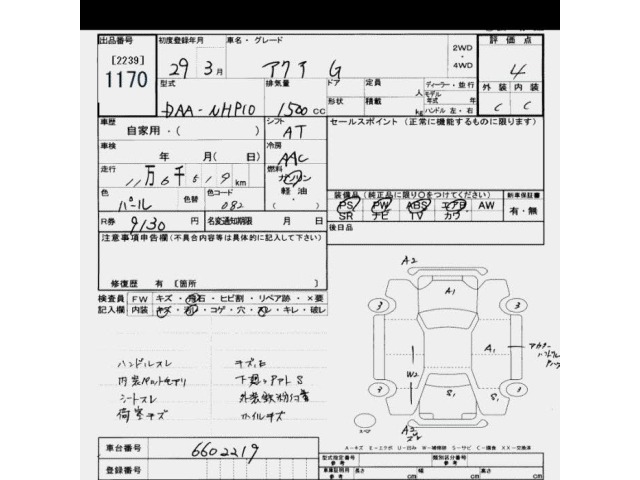 出品番号 初度登録年月 車名・グレード 2WD・4WD 評価点
[2239]
1170
29年 3月 アクア G 4
型式 排気量 ドア 定員 人 ディーラー・並行 外装 内装
DAA-NHP10 1500cc 形状 積載 kg モデル年式 年式 ハンドル 左・右 C C
車歴 シフト セールスポイント (正常に機能するものに限ります)
自家用・( ) AT
車検 冷房
年 月(日) AAC
走行 燃料
11万6千519km ガソリン
軽油
・( )
色 色替 色コード
パール 082
装備品(純正品に限り○をつけてください) 新車保証書
PS PW ABS エアB AW 有・無
SR ナビ TV カワ
R券 9130円 名変通知期限 月 日 後日品
注意事項申告欄(不具合内容等は具体的に記入して下さい)
修復歴 有 [箇所 ]
検査員記入欄 FW キズ・飛石・ヒビ割・リペア跡・×要
内装 キズ・汚レ・コゲ・穴・スレ・キレ・破レ
ハンドルスレ
シートスレ
荷室キズ
ホイルキズ
A2
A1
3 3
A1
W2
3 3
S1 S1
A3
スペア
A-キズ E-エクボ U-凹み W-補修跡 S-サビ C-腐食 XX-交換済
車台番号 6602219
登録番号
型式指定番号 参考 類別区分番号 参考
車庫証明用 参考 長さ cm 幅 cm 高さ cm